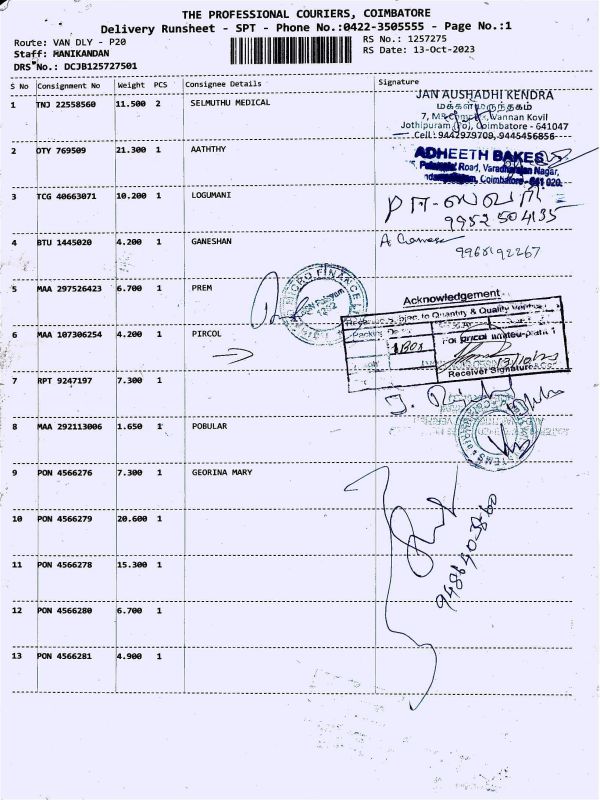 THE PROFESSIONAL COURIERS, COIMBATORE
Delivery Runsheet - SPT - Phone No.:0422-3505555 - Page No.:1
Route: VAN DLY - P20
Staff: MANIKANDAN
DRS No.: DCJB125727501
RS No.: 1257275
RS Date: 13-Oct-2023
S No Consignment No Weight PCS Consignee Details Signature
1 TNJ 22558560 11.500 2 SELMUTHU MEDICAL
JAN AUSHADHI KENDRA
மக்கள் மருந்தகம்
7, Vannan Kovil
Jothipuram (Po), Coimbatore - 641047
Cell: 9442979709, 9445456856
2 OTY 769509 21.300 1 AATHTHY
ADHEETH BAKES
Road, Varadharajan Nagar,
Coimbatore - 641 020
3 TCG 40663071 10.200 1 LOGUMANI
9952504135
4 BTU 1445020 4.200 1 GANESHAN
5 MAA 297526423 6.700 1 PREM
MICRO FINANCE
Acknowledgement
Subject to Quantity & Quality
6 MAA 107306254 4.200 1 PIRCOL
For pricol limited-plant 1
13/10/23
Receiver Signature
7 RPT 9247197 7.300 1
8 MAA 292113006 1.650 1 POBULAR
9 PON 4566276 7.300 1 GEORINA MARY
10 PON 4566279 20.600 1
11 PON 4566278 15.300 1
12 PON 4566280 6.700 1
13 PON 4566281 4.900 1